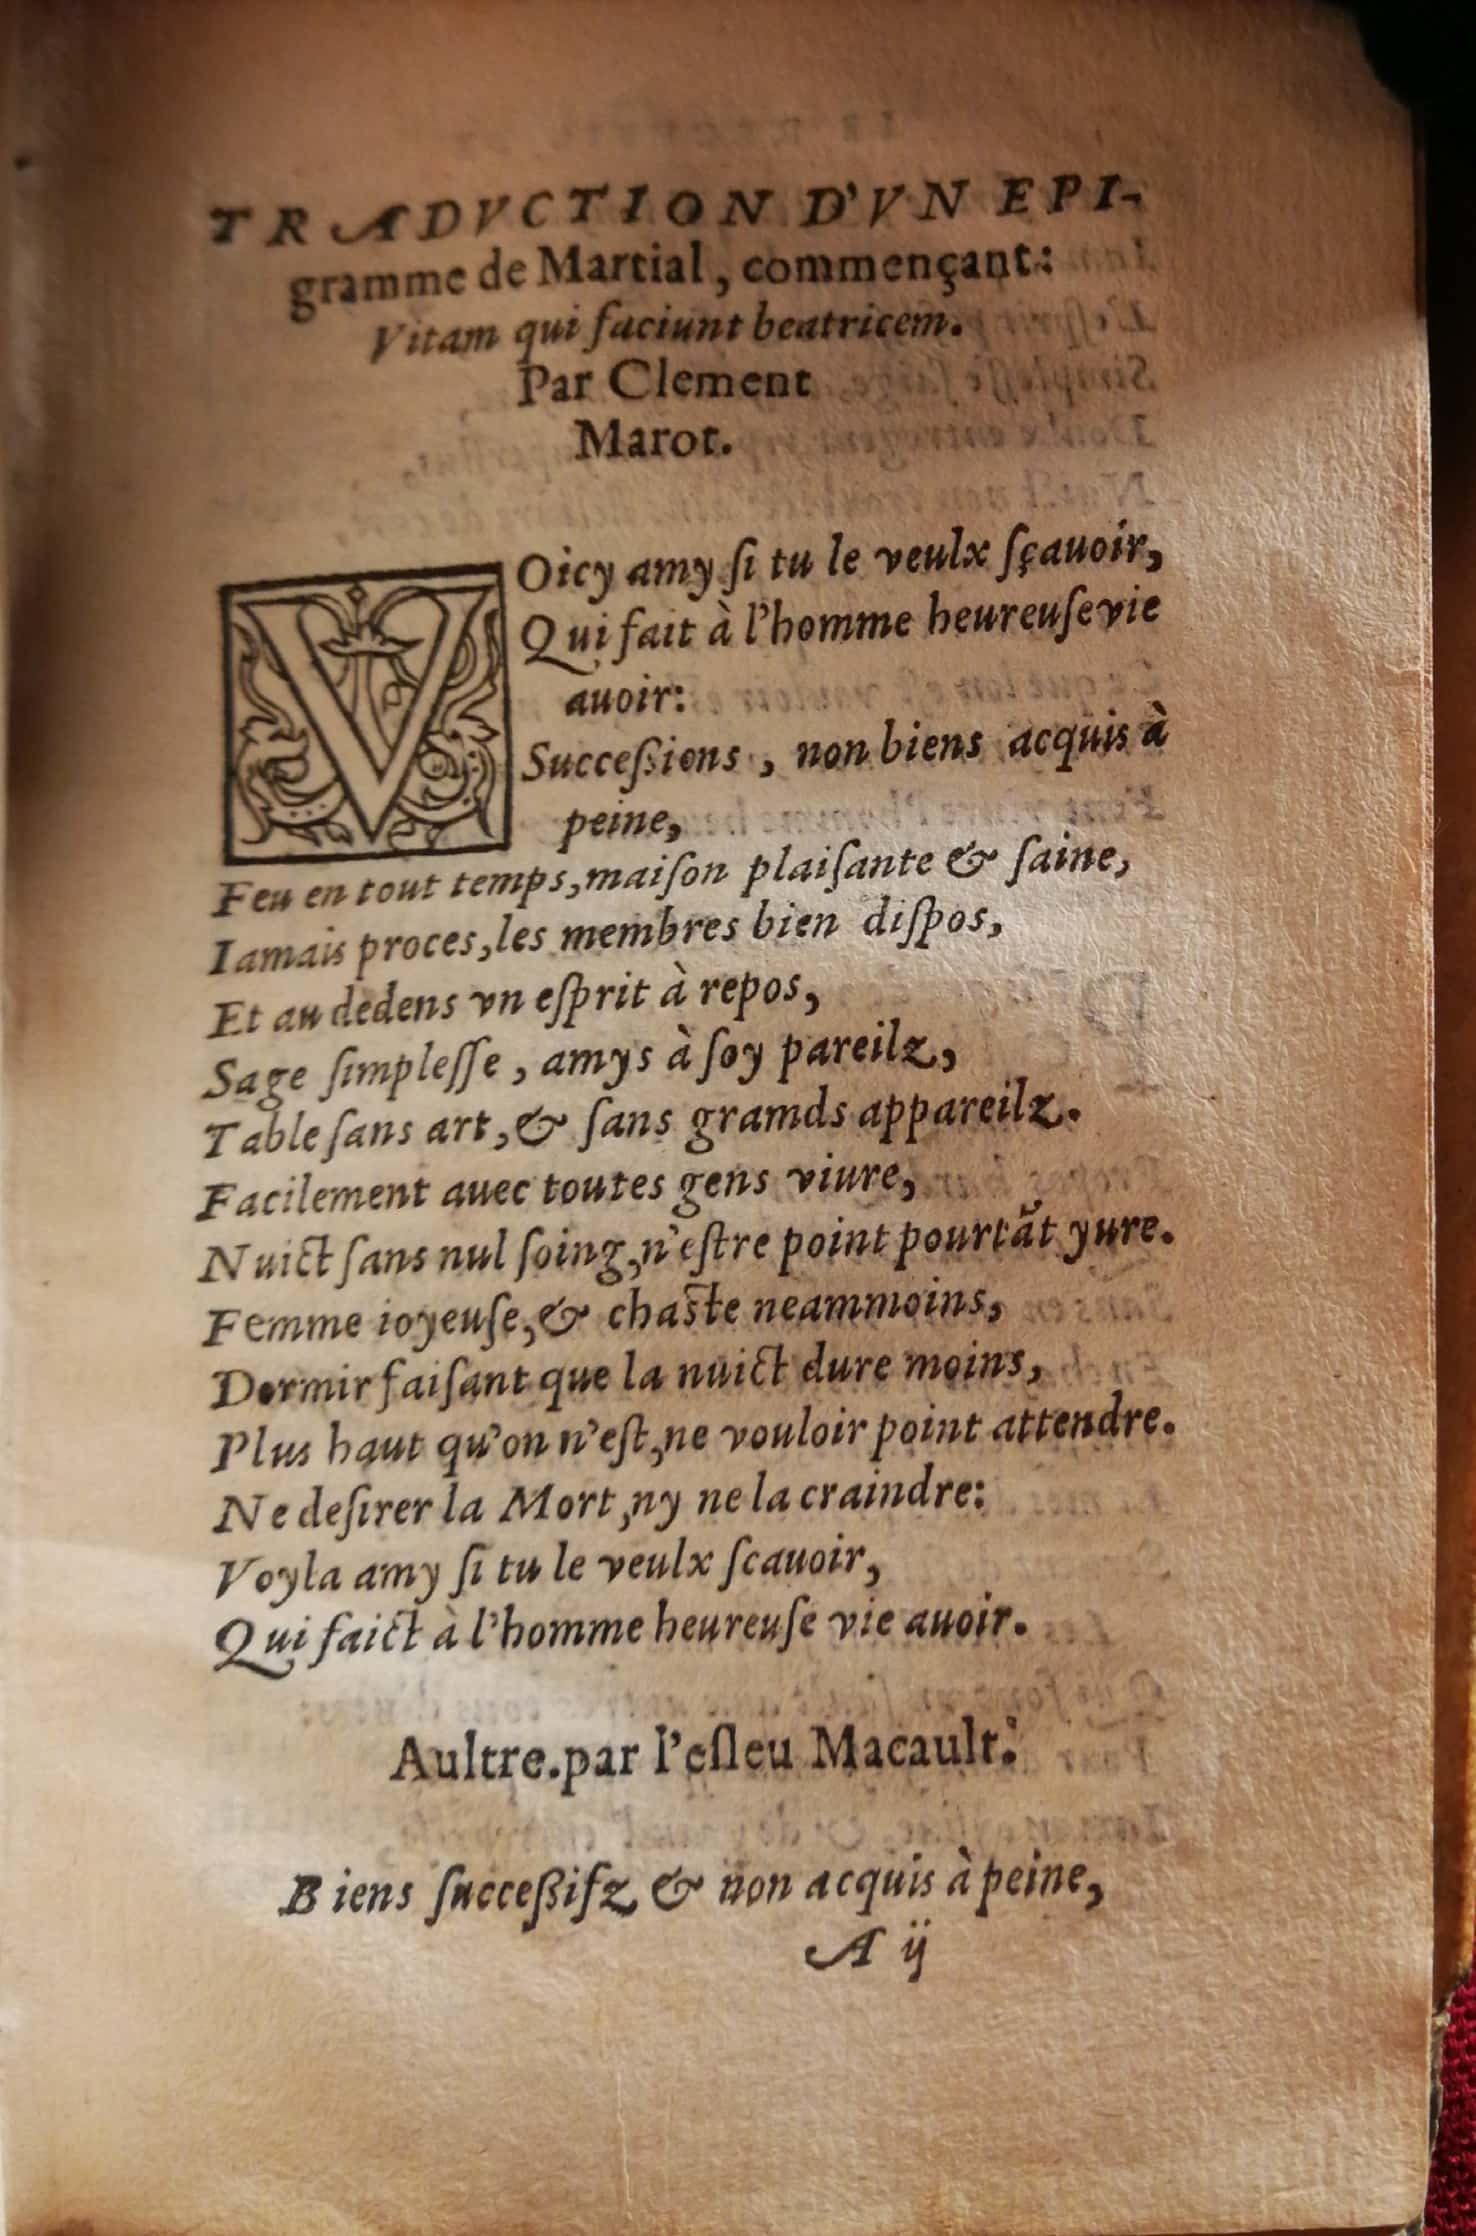 TRADVCTION D'VN EPI-
gramme de Martial, commençant:
Vitam qui faciunt beatricem.
Par Clement
Marot.
VOicy amy ſi tu le veulx ſçauoir,
Qui fait à l'homme heureuſe vie
auoir:
Succeſſions, non biens acquis à
peine,
Feu en tout temps, maiſon plaiſante & ſaine,
Iamais proces, les membres bien diſpos,
Et au dedens vn eſprit à repos,
Sage ſimpleſſe, amys à ſoy pareilz,
Table ſans art, & ſans gramds appareilz.
Facilement auec toutes gens viure,
Nuict ſans nul ſoing, n'eſtre point pourtãt yure.
Femme ioyeuſe, & chaſte neammoins,
Dormir faiſant que la nuict dure moins,
Plus haut qu'on n'eſt, ne vouloir point attendre.
Ne deſirer la Mort, ny ne la craindre:
Voyla amy ſi tu le veulx ſcauoir,
Qui faict à l'homme heureuſe vie auoir.
Aultre.par l'eſleu Macault:
Biens ſucceßifz & non acquis à peine,
A ij